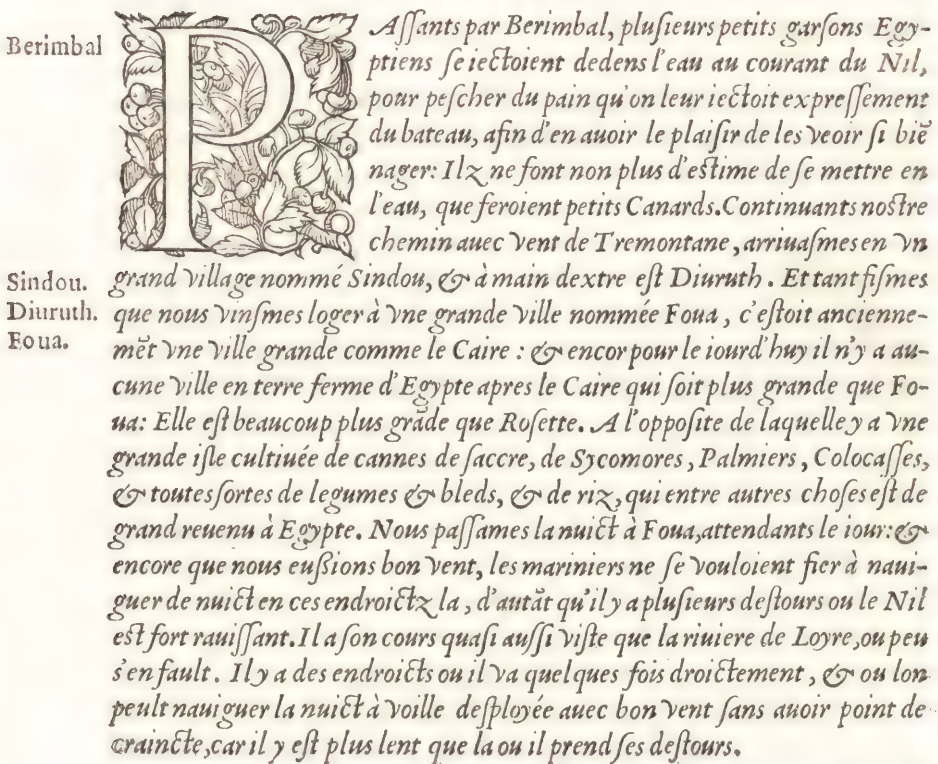 Berimbal
PAſſants par Berimbal, pluſieurs petits garſons Egy-
ptiens ſe iectoient dedens l'eau au courant du Nil,
pour peſcher du pain qu'on leur iectoit expreſſement
du bateau, afin d'en auoir le plaiſir de les veoir ſi biẽ
nager: Ilz ne font non plus d'eſtime de ſe mettre en
l'eau, que feroient petits Canards. Continuants noſtre
chemin auec vent de Tremontane, arriuaſmes en vn
Sindou.
grand village nommé Sindou, & à main dextre eſt Diuruth. Et tant fiſmes
Diuruth.
que nous vinſmes loger à vne grande ville nommée Foua, c'eſtoit ancienne-
Foua.
mẽt vne ville grande comme le Caire : & encor pour le iourd'huy il n'y a au-
cune ville en terre ferme d'Egypte apres le Caire qui ſoit plus grande que Fo-
ua: Elle eſt beaucoup plus grãde que Roſette. A l'oppoſite de laquelle y a vne
grande iſle cultiuée de cannes de ſaccre, de Sycomores, Palmiers, Colocaſſes,
& toutes ſortes de legumes & bleds, & de riz, qui entre autres choſes eſt de
grand reuenu à Egypte. Nous paſſames la nuict à Foua, attendants le iour: &
encore que nous euſsions bon vent, les mariniers ne ſe vouloient fier à naui-
guer de nuict en ces endroictz la, d'autãt qu'il y a pluſieurs deſtours ou le Nil
eſt fort rauiſſant. Il a ſon cours quaſi auſſi viſte que la riuiere de Loyre, ou peu
s'en fault. Il y a des endroicts ou il va quelques fois droictement, & ou lon
peult nauiguer la nuict à voille deſployée auec bon vent ſans auoir point de
craincte, car il y eſt plus lent que la ou il prend ſes deſtours.